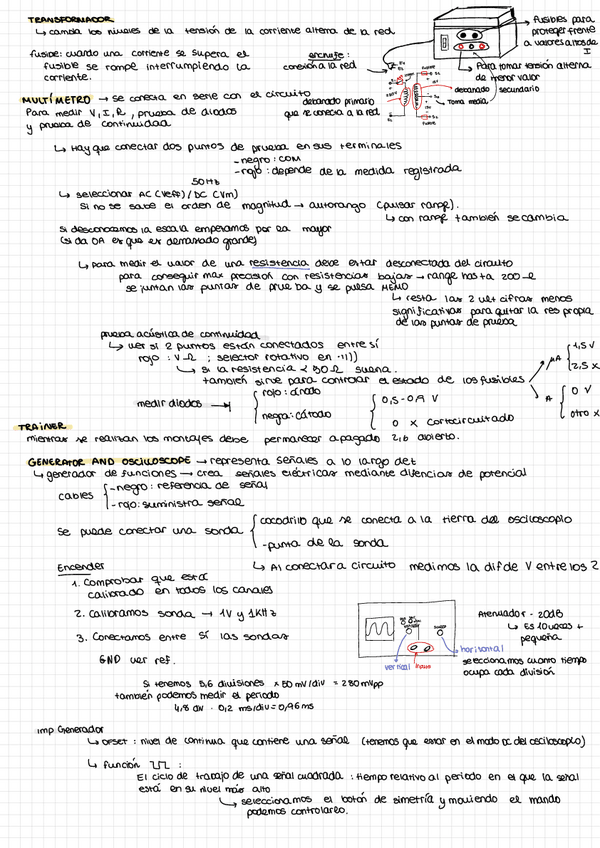 TRANSFORMADOR
↳ cambia los niveles de la tensión de la corriente alterna de la red.
fusible: cuando una corriente se supera el
fusible se rompe interrumpiendo la
corriente.
enchufe:
conexión a la red
fusibles para
proteger frente
a valores altos de
I
Para tomar tensión alterna
de menor valor
devanado secundario
Toma media
devanado primario
que se conecta a la red
MULTÍMETRO → se conecta en serie con el circuito
Para medir V, I, R, prueba de diodos
y prueba de continuidad
↳ Hay que conectar dos puntos de prueba en sus terminales
- negro: COM
- rojo: depende de la medida registrada
50Hz
↳ seleccionar AC (Veff) / DC (Vm)
Si no se sabe el orden de magnitud → autorango (pulsar range).
↳ con range también se cambia
si desconocemos la escala empezamos por la mayor
(si da OA es que es demasiado grande)
↳ para medir el valor de una resistencia debe estar desconectada del circuito
para conseguir max precisión con resistencias bajas → range hasta 200 Ω
se juntan las puntas de prueba y se pulsa MEMO
↳ resta las 2 ult cifras menos
significativas para quitar la res propia
de las puntas de prueba
prueba acústica de continuidad
↳ ver si 2 puntos están conectados entre sí
rojo: V Ω ; selector rotativo en ·)))
↳ si la resistencia < 50 Ω suena.
también sirve para controlar el estado de los fusibles
μA { 1,5 V
2,5 x
A { 0 V
otro x
medir diodos → { rojo: ánodo
negra: cátodo
{ 0,5-0,9 V
0 x cortocircuitado
TRAINER
mientras se realizan los montajes debe permanecer apagado
GENERATOR AND OSCILOSCOPE → representa señales a lo largo de t
↳ generador de funciones → crea señales eléctricas mediante difencias de potencial
cables { - negro: referencia de señal
- rojo: suministra señal
Se puede conectar una sonda { cocodrilo que se conecta a la tierra del osciloscopio
- punta de la sonda
↳ Al conectar a circuito medimos la dif de V entre los 2
Encender
1. Comprobar que está
calibrado en todos los canales
2. Calibramos sonda → 1V y 1KHz
3. Conectamos entre sí las sondas
GND ver ref.
vertical
horizontal
seleccionamos cuanto tiempo
ocupa cada división
Atenuador - 20dB
↳ Es 10 veces +
pequeña
Si tenemos 5,6 divisiones x 50 mV/div = 280 mVpp
también podemos medir el periodo
4,8 div · 0,2 ms/div = 0,96 ms
imp Generador
↳ Offset: nivel de continua que contiene una señal (tenemos que estar en el modo DC del osciloscopio)
↳ función :
El ciclo de trabajo de una señal cuadrada: tiempo relativo al periodo en el que la señal
está en su nivel más alto
↳ seleccionamos el botón de simetría y moviendo el mando
podemos controlarlo.